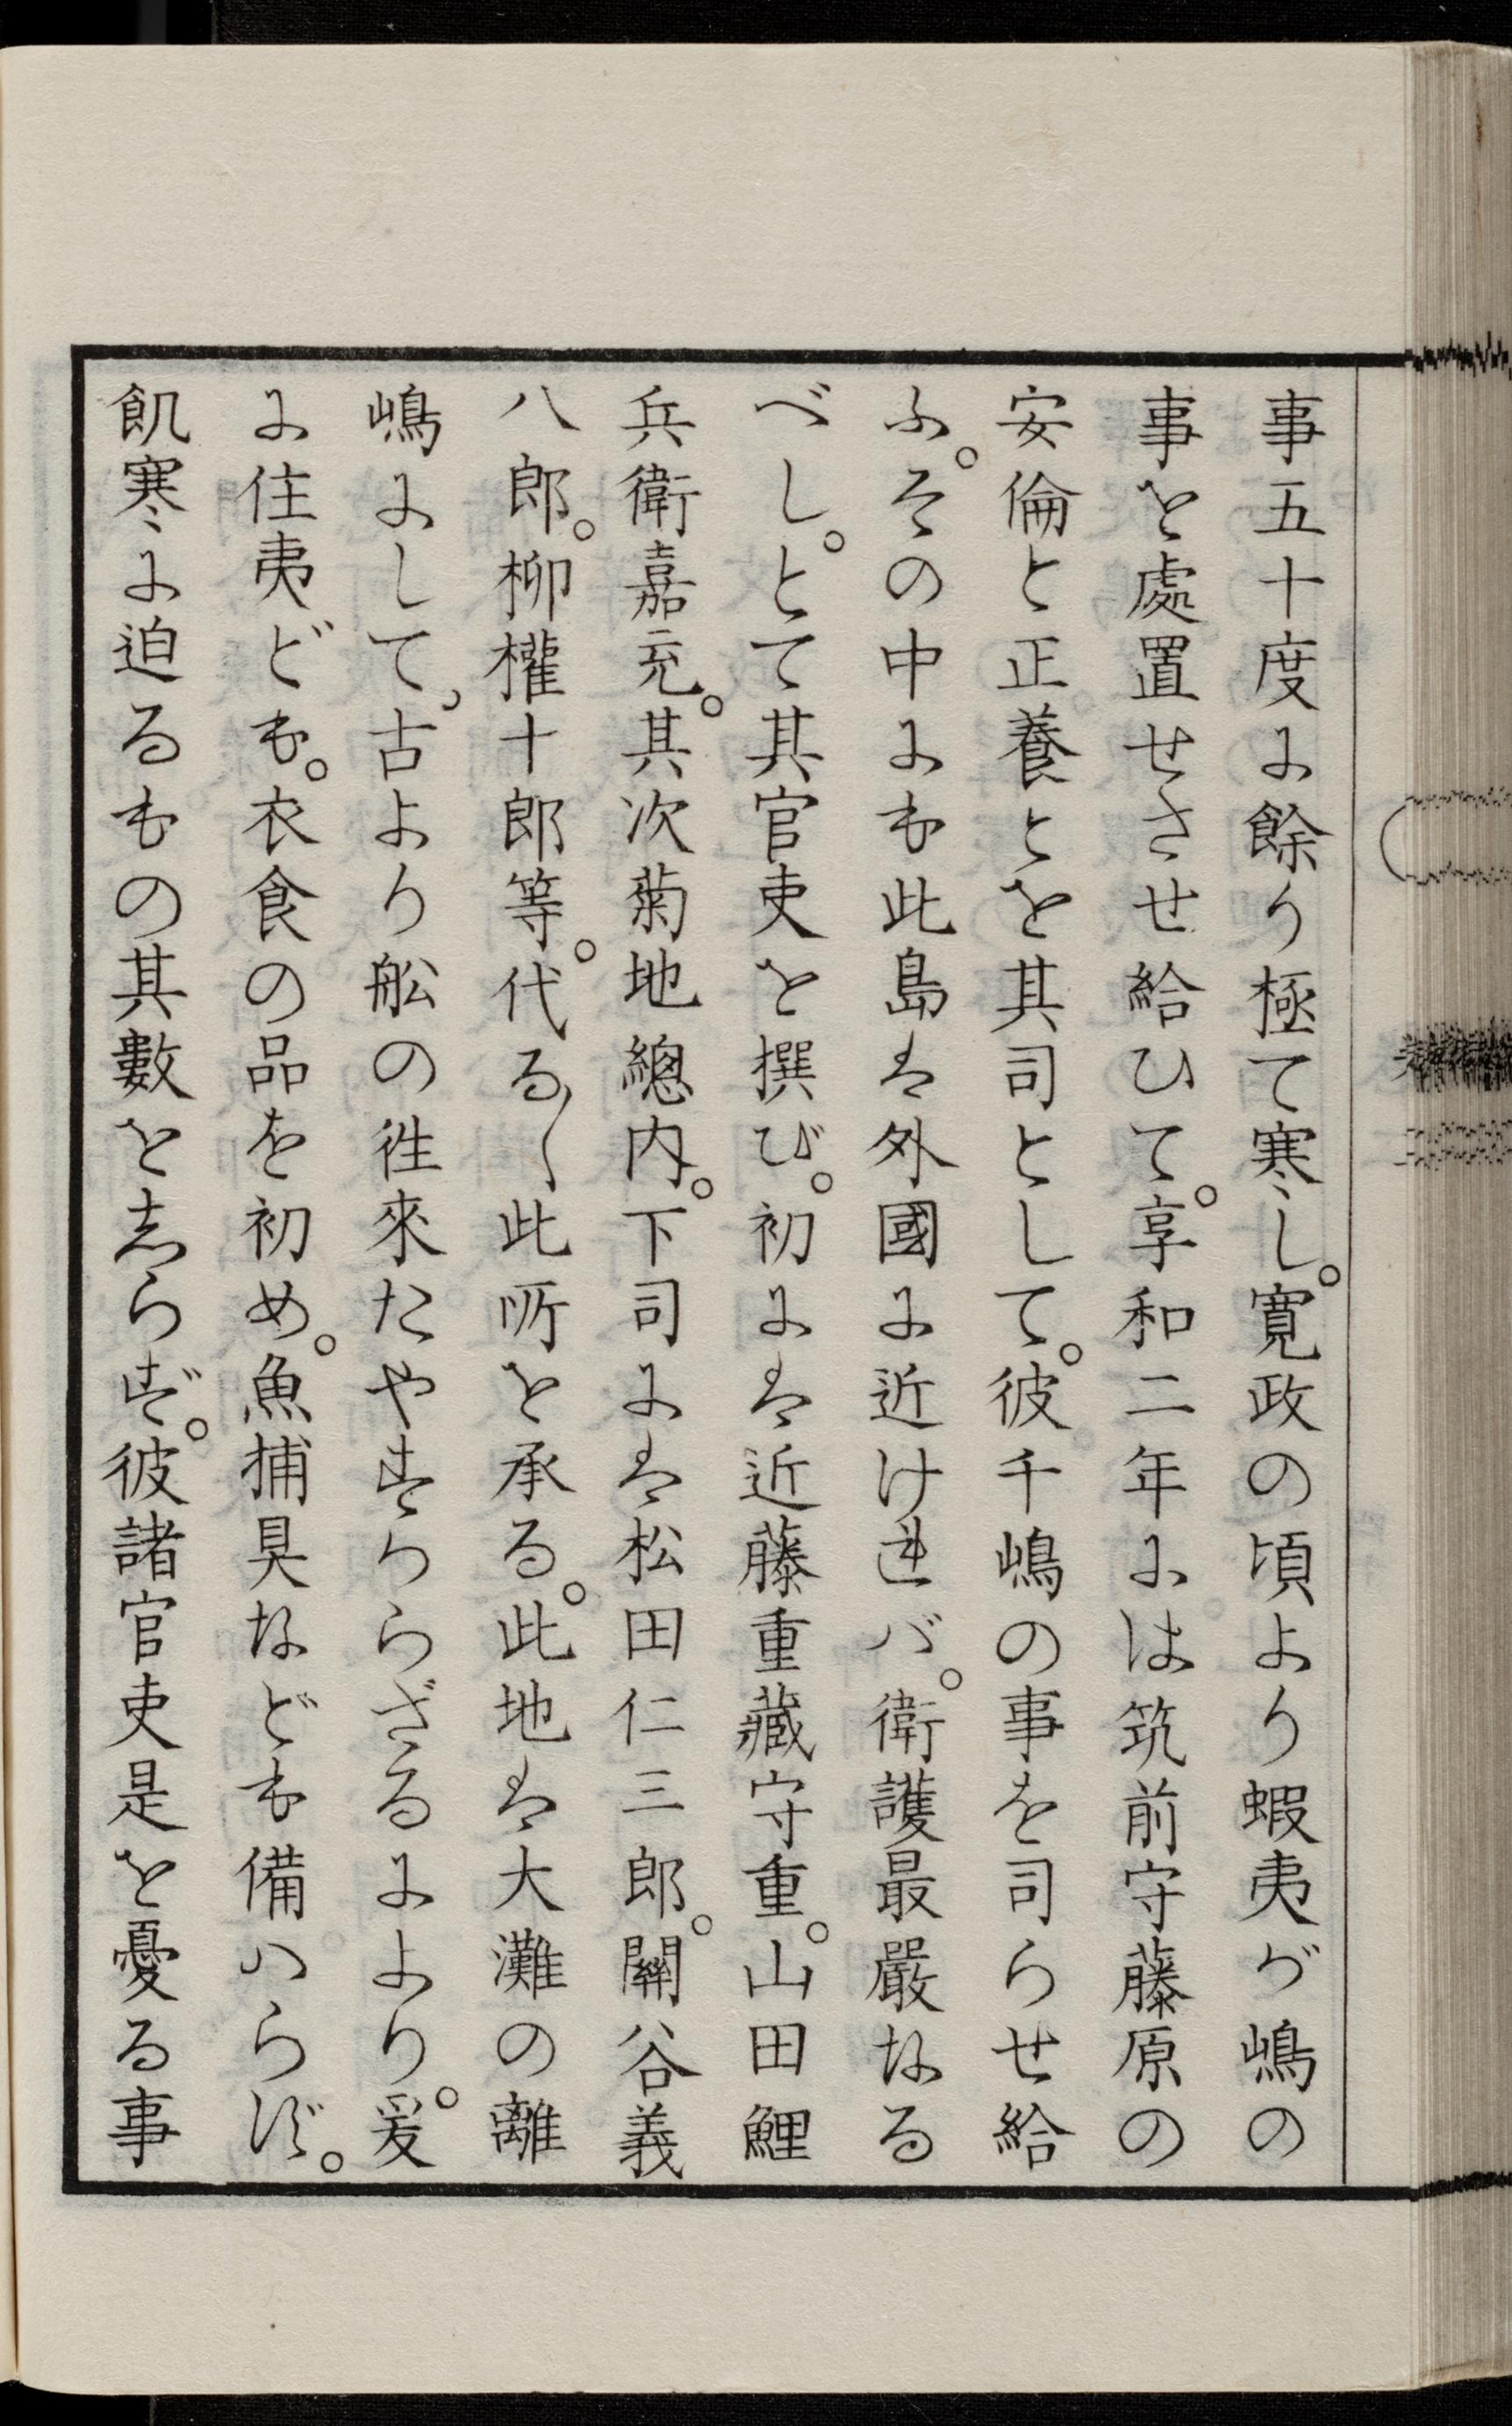 事五十度に餘り極て寒し。寛政の頃より蝦夷が嶋の
事を處置せさせ給ひて。享和二年には筑前守藤原の
安倫と正養とを其司として。彼千嶋の事を司らせ給
ふ。その中にも此島は外國に近ければ。衛護最嚴なる
べし。とて其官吏を撰び。初には近藤重藏守重。山田鯉
兵衛嘉充。其次菊地總内。下司には松田仁三郎。關谷義
八郎。柳權十郎等。代る〱此所を承る。此地は大灘の離
嶋にして、古より舩の徃來たやすからざるにより。爰
に住夷ども。衣食の品を初め。魚捕具なども備ハらず。
飢寒に迫るもの其數をしらず。彼諸官吏是を憂る事